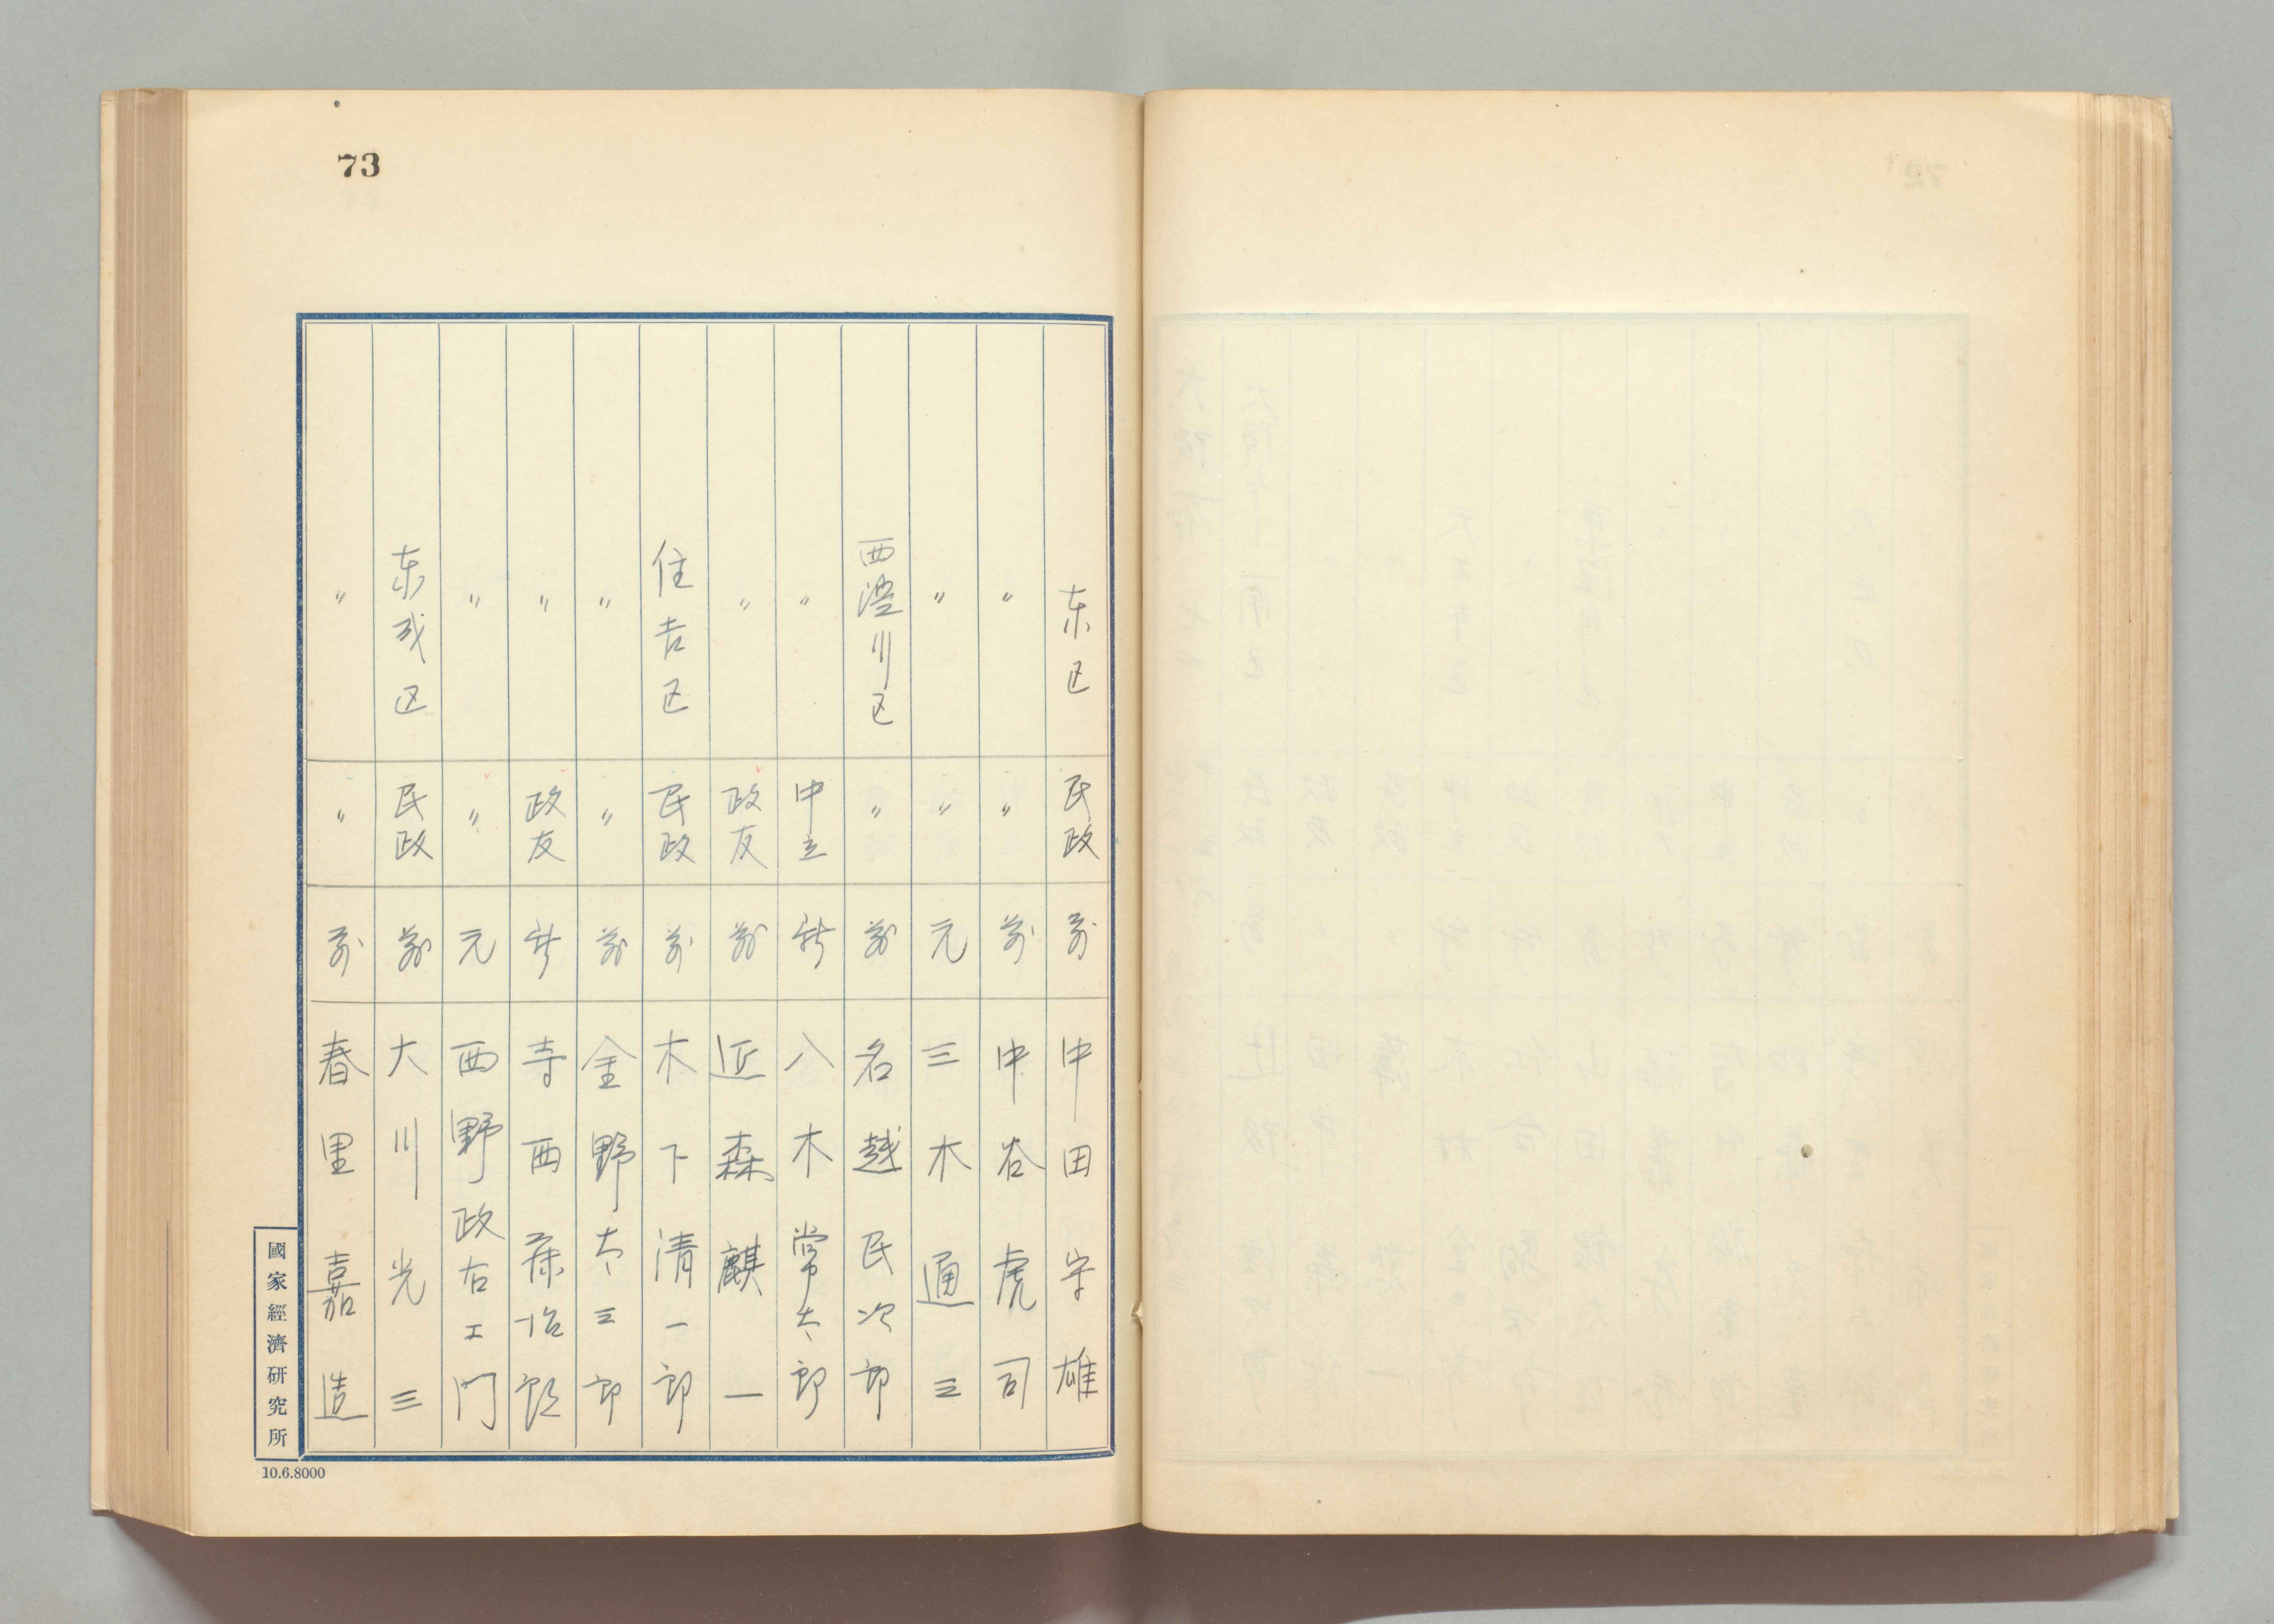 73
东区 民政 前 中田守雄
〃 〃 前 中谷虎司
〃 〃 元 三木通三
西淀川区 〃 前 名越民次郎
〃 中立 新 八木常太郎
〃 政友 前 近森麒一
住吉区 民政 前 木下清一郎
〃 〃 前 金野太三郎
〃 政友 新 寺西藤治郎
〃 〃 元 西野政右エ门
东成区 民政 前 大川光三
〃 〃 前 春里嘉造
國家經濟研究所
10.6.8000